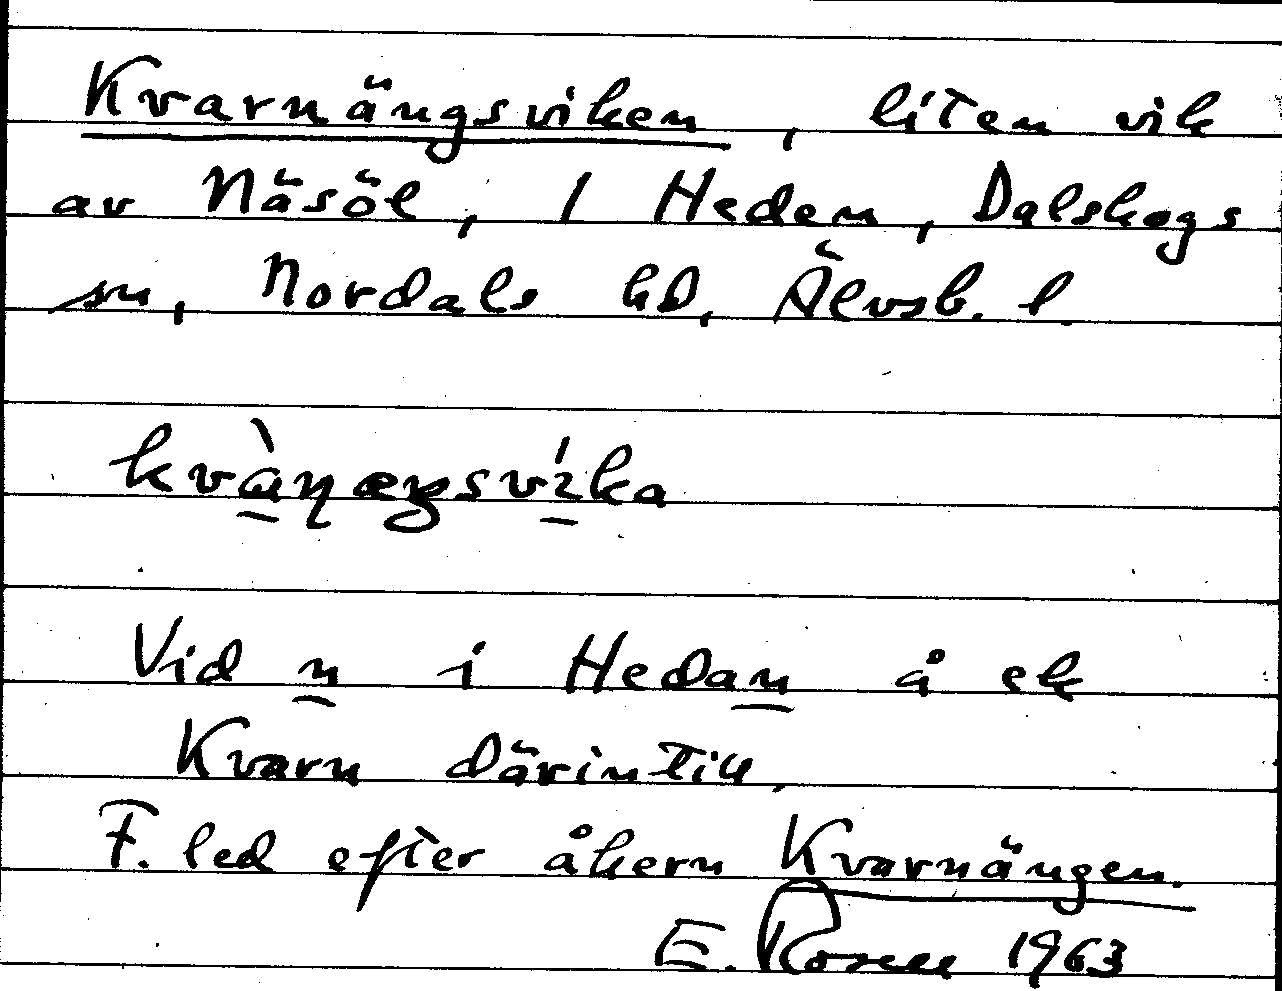 Kvarnängsviken, liten vik
av Näsöl, / Heden, Dalskogs
sn, Nordals hd, Älvsb. l.
Vid n i Hedan å ek
Kvarn därintill.
F. led efter åkern Kvarnängen.
E. Rosell 1963